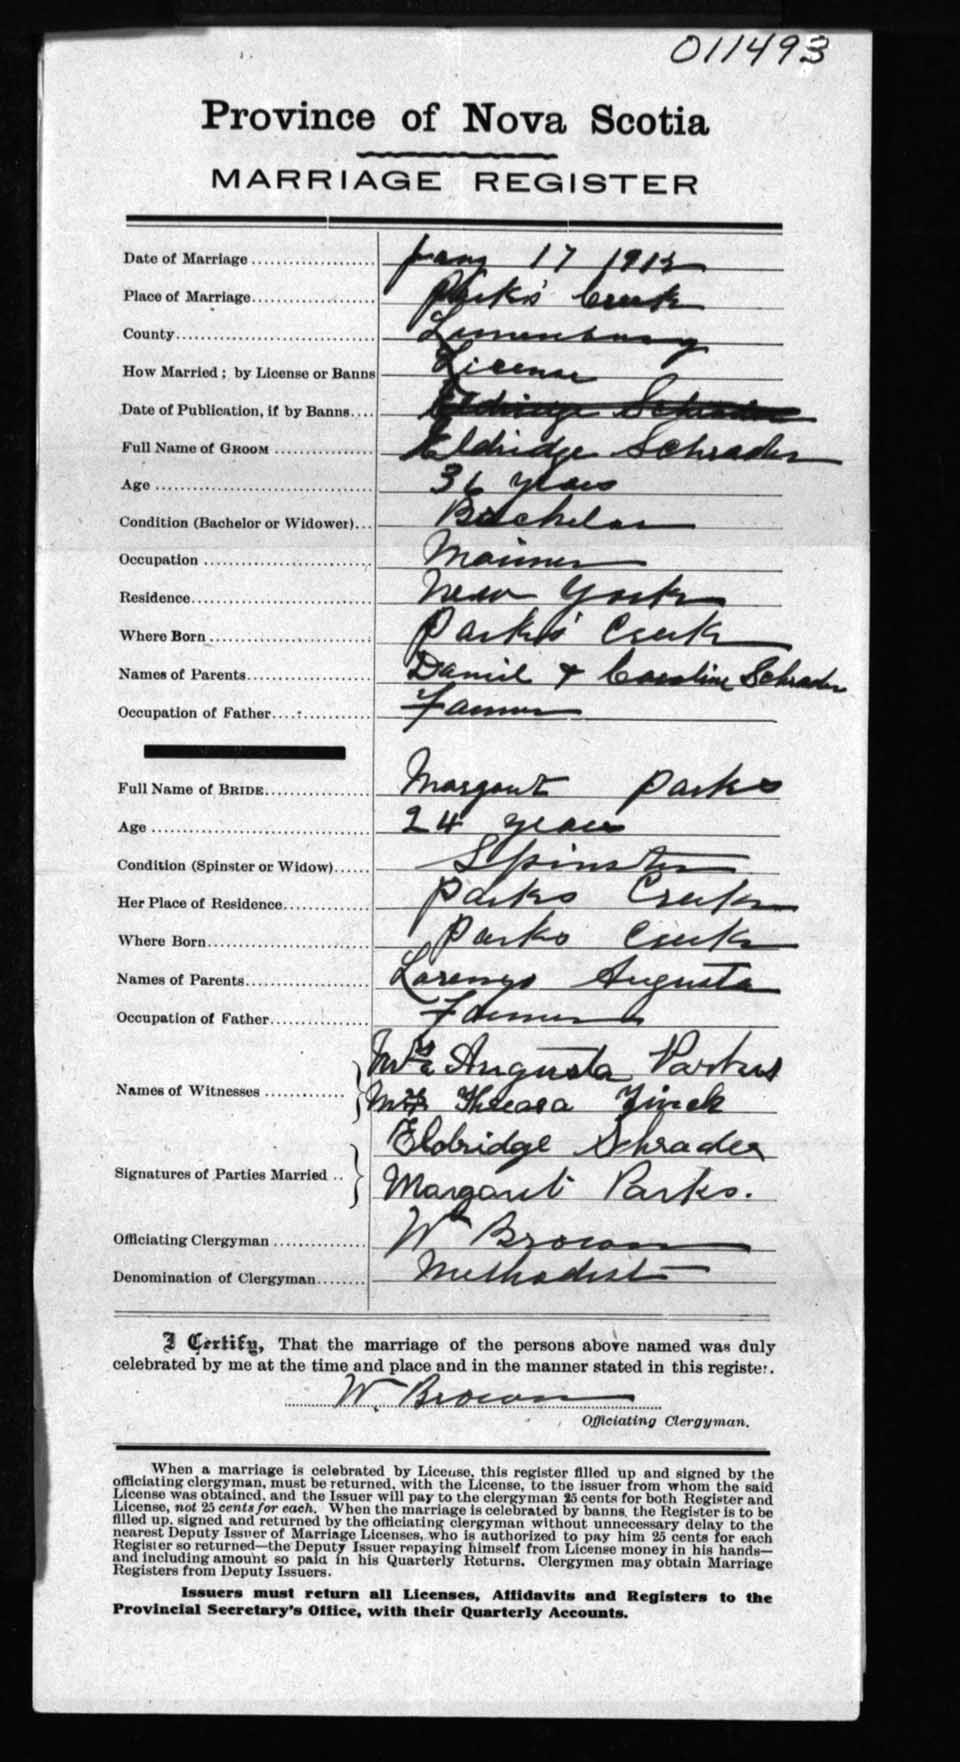 011493
Province of Nova Scotia
MARRIAGE REGISTER
Date of Marriage Jany 17 1912
Place of Marriage Parks' Creek
County Lunenburg
How Married; by License or Banns License
Date of Publication, if by Banns Eldridge Schrader
Full Name of GROOM Eldridge Schrader
Age 36 years
Condition (Bachelor or Widower) Bachelor
Occupation Mariner
Residence New York
Where Born Parks' Creek
Names of Parents Daniel & Caroline Schrader
Occupation of Father Farmer
Full Name of BRIDE Margaret Parks
Age 24 years
Condition (Spinster or Widow) Spinster
Her Place of Residence Parks Creek
Where Born Parks Creek
Names of Parents Lorenzo Augusta
Occupation of Father Farmer
Names of Witnesses Mrs Augusta Parks
Finck
Signatures of Parties Married Eldridge Schrader
Margaret Parks.
Officiating Clergyman Wm Brown
Denomination of Clergyman Methodist
I Certify, That the marriage of the persons above named was duly
celebrated by me at the time and place and in the manner stated in this register.
W. Brown
Officiating Clergyman.
When a marriage is celebrated by License, this register filled up and signed by the
officiating clergyman, must be returned, with the License, to the issuer from whom the said
License was obtained, and the Issuer will pay to the clergyman 25 cents for both Register and
License, not 25 cents for each. When the marriage is celebrated by banns, the Register is to be
filled up, signed and returned by the officiating clergyman without unnecessary delay to the
nearest Deputy Issuer of Marriage Licenses, who is authorized to pay him 25 cents for each
Register so returned—the Deputy Issuer repaying himself from License money in his hands—
and including amount so paid in his Quarterly Returns. Clergymen may obtain Marriage
Registers from Deputy Issuers.
Issuers must return all Licenses, Affidavits and Registers to the
Provincial Secretary's Office, with their Quarterly Accounts.